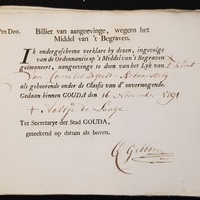 Pro Deo. Billiet van aangeevinge, wegens het
Middel van 't Begraven.
Ik ondergeschreve verklare by dezen, ingevolge
van de Ordonnantie op 't Middel van't Begraven
geëmaneert, aangeevinge te doen van het Lyk van 't Kint
van Cornelis
als gehoorende onder de Classis van d' onvermogende.
Gedaan binnen GOUDA den 16 November 1791
Ter Secretarye der Stad GOUDA,
geteekend op datum als boven.